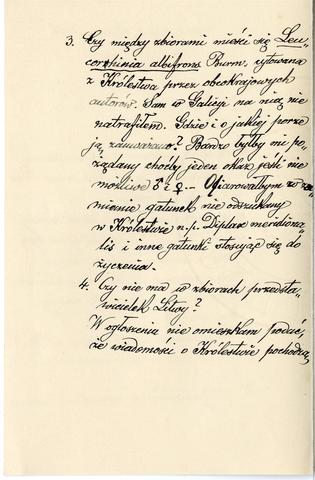 3. Czy między zbiorami mieści się Leu
corrhinia albifrons Burm. cytowana
z Królestwa przez obcokrajowych
autorów. Sam w Galicyi na nią nie
natrafiłem. Gdzie i o jakiej porze
ją zauważano? Bardzo byłby mi po,
żądany choćby jeden okaz jeśli nie
możliwe ♂ i ♀... Ofiarowałbym w za,
mianie gatunek nie odszukany
w Królestwie n.p. Diplax meridiona,
lis i inne gatunki stosując się do
życzenia.
4. Czy nie ma w zbiorach przedsta,
wicielek Litwy?
W ogłoszeniu nie omieszkam podać,
że wiadomości o Królestwie pochodzą